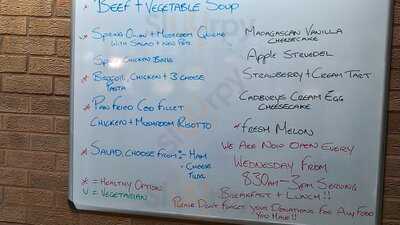 * Beef + Vegetable Soup
* Spring Onion + Mushroom Quiche
with Salad + New Pots
Chicken Balls
* Broccoli, Chicken + 3 Cheese
Pasta
* Pan Fried Cod Fillet
Chicken + Mushroom Risotto
* Salad, Choose From :- Ham
- Cheese
Tuna
* = Healthy Option
V = Vegetarian
Madagascan Vanilla
Cheesecake
Apple Strudel
Strawberry + Cream Tart
Cadburys Cream Egg
Cheesecake
* Fresh Melon
We Are Now Open Every
Wednesday From
8.30am - 3pm Serving
Breakfast + Lunch!!
Please Don't Forget your Donations For Any Food
You Have!!